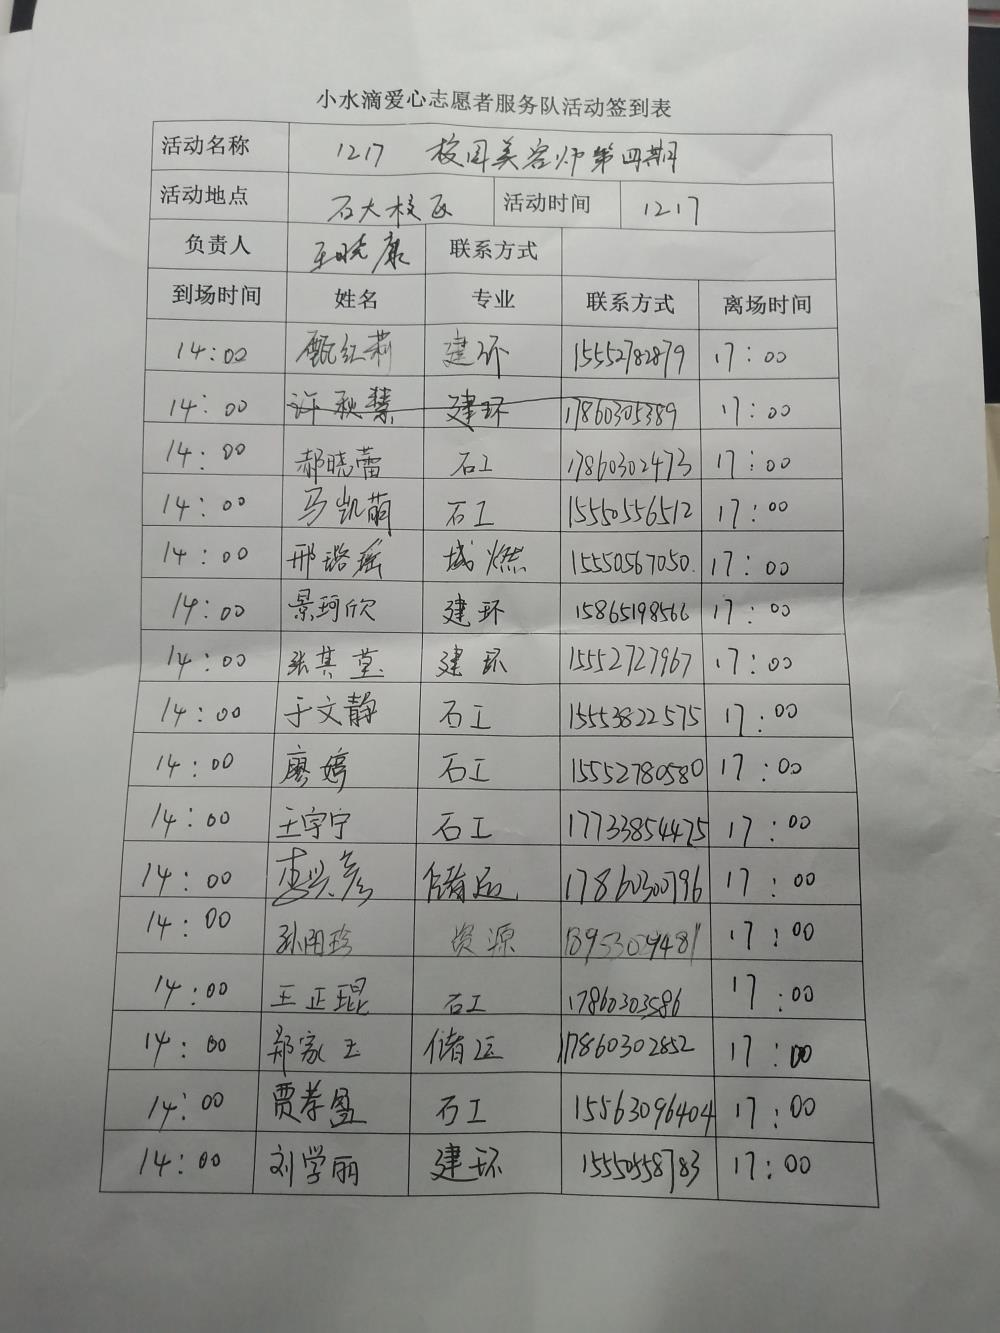 小水滴爱心志愿者服务队活动签到表
活动名称 1217 校园美容师第四期
活动地点 石大校区 活动时间 1217
负责人 王晓康 联系方式
到场时间 姓名 专业 联系方式 离场时间
14:00 甄红莉 建环 15552782879 17:00
14:00 许秋慧 建环 17860305389 17:00
14:00 郝晓蕾 石工 17860302473 17:00
14:00 马凯萌 石工 15550556512 17:00
14:00 邢璐瑶 城燃 15550567050. 17:00
14:00 景珂欣 建环 15865198566 17:00
14:00 张其堂 建环 15552727967 17:00
14:00 于文静 石工 15553822575 17:00
14:00 廖婷 石工 15552780580 17:00
14:00 王宇宁 石工 17733854475 17:00
14:00 李兴彦 储运 17860300796 17:00
14:00 孙阳珍 资源 17:00
14:00 王正琨 石工 17860303586 17:00
14:00 郑家玉 储运 17860302852 17:00
14:00 贾孝盈 石工 15563096404 17:00
14:00 刘学丽 建环 15550558783 17:00